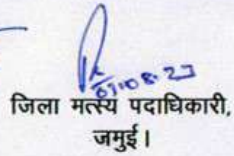 07.08.23
जिला मत्स्य पदाधिकारी,
जमुई।